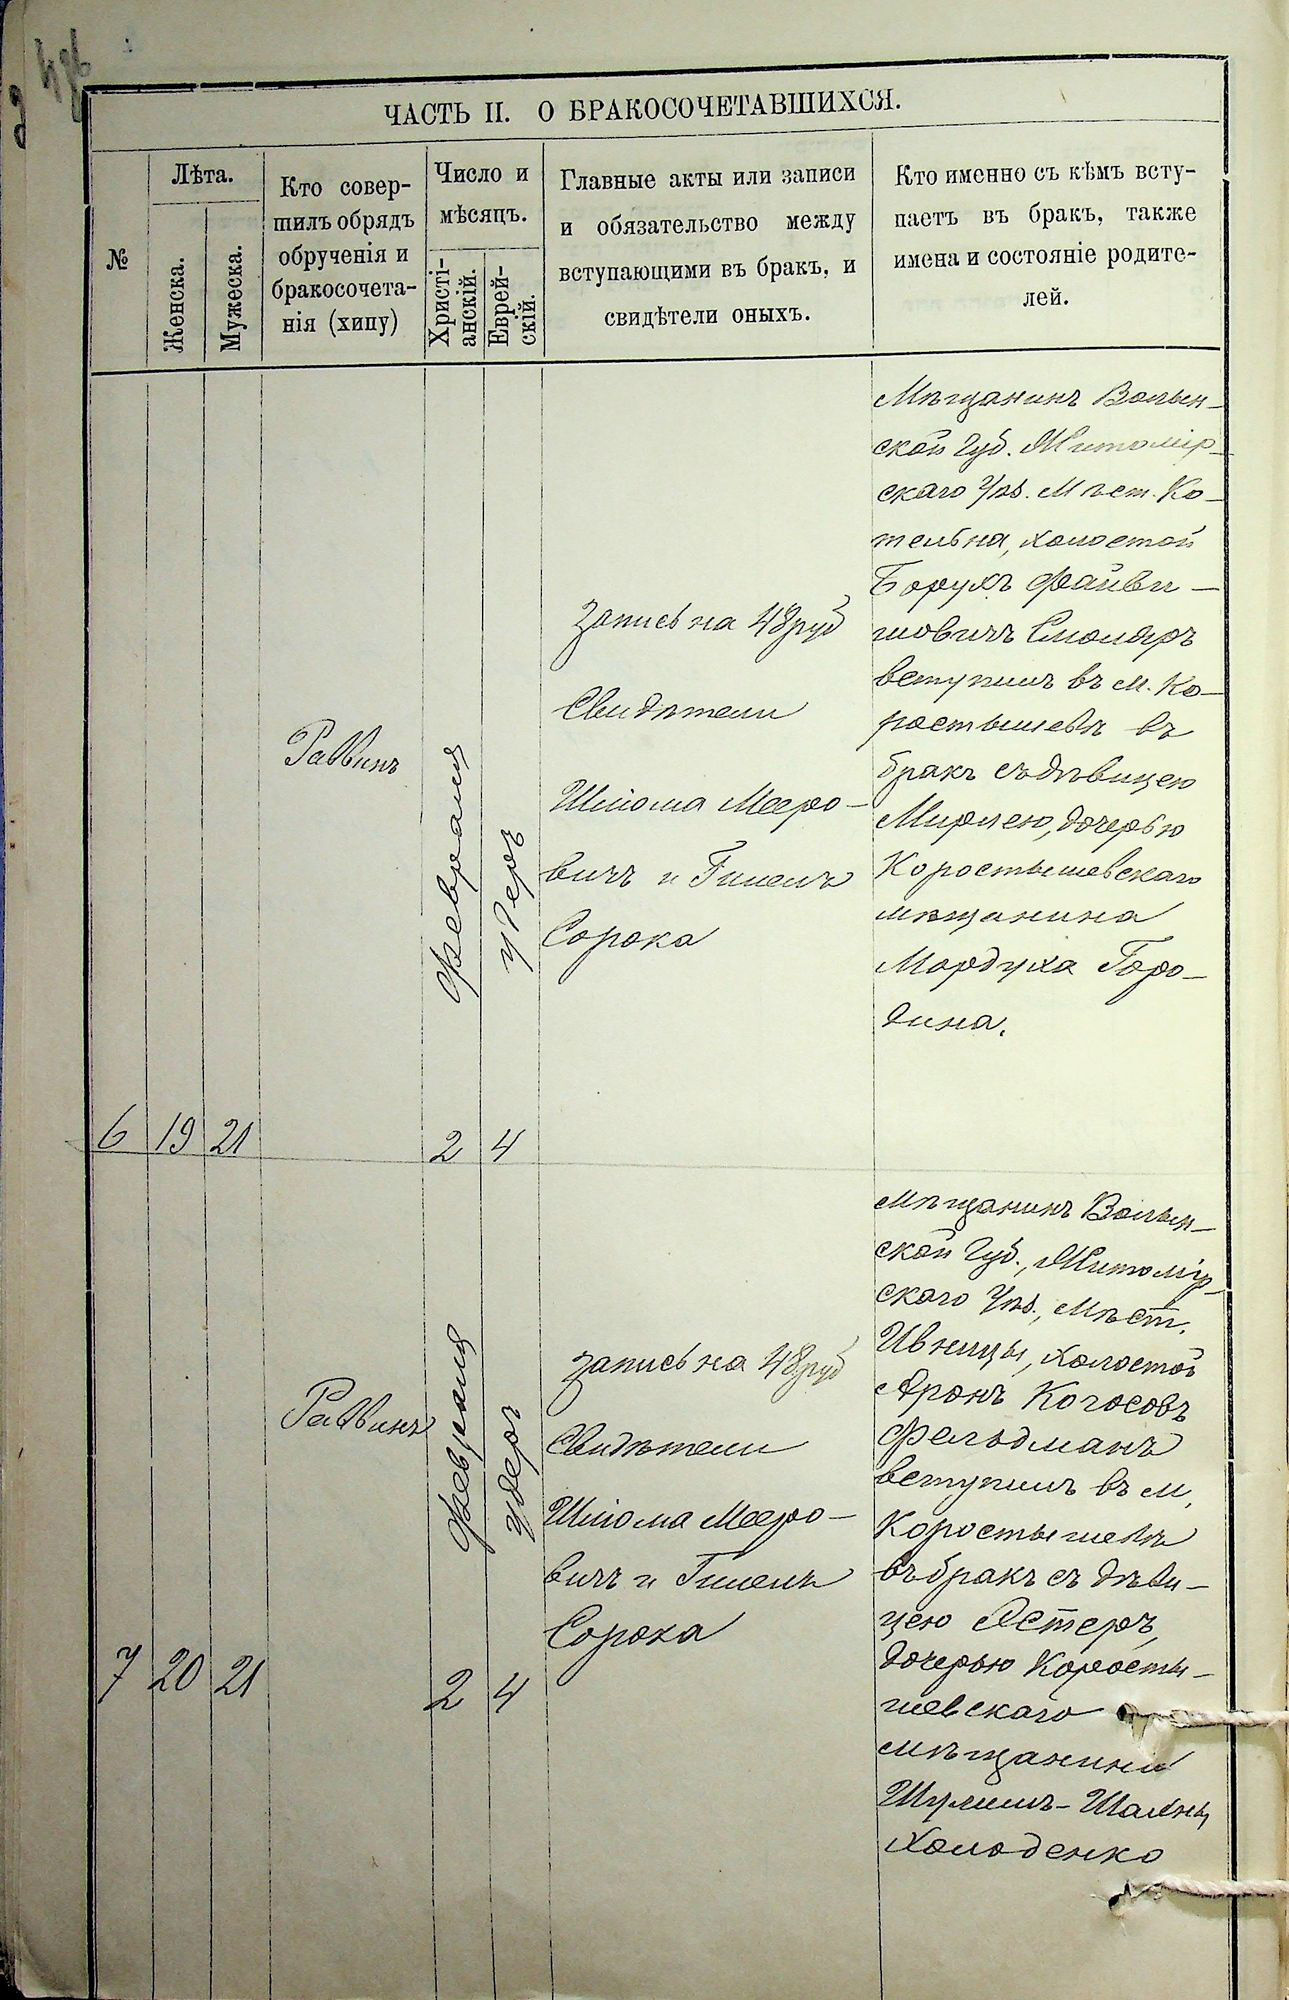 ЧАСТЬ II. О БРАКОСОЧЕТАВШИХСЯ.
№
Лѣта.
Женска.
Мужеска.
Кто совер-
шилъ обрядъ
обрученія и
бракосочета-
нія (хипу)
Число и
мѣсяцъ.
Христі-
анскій.
Еврей-
скій.
Главные акты или записи
и обязательство между
вступающими въ бракъ, и
свидѣтели оныхъ.
Кто именно съ кѣмъ всту-
паетъ въ бракъ, также
имена и состояніе родите-
лей.
6
19
21
Раввинъ
февраля
2
удеръ
4
Запись на 48 руб
Свидѣтели
Шлома Мееро-
вичъ и Гилель
Сорока
Мѣщанинъ Волын-
ской Губ. Житомір-
скаго Уѣз. Мѣст. Ко-
тельна, холостой
Борухъ Файви-
шовичъ Смоляръ
вступилъ въ м. Ко-
ростышевѣ въ
бракъ съ дѣвицею
Мирлею, дочерью
Коростышевскаго
мѣщанина
Мордуха Горо-
дина.
7
20
21
Раввинъ
февраля
2
удеръ
4
Запись на 48 руб
Свидѣтели
Шлома Мееро-
вичъ и Гилель
Сорока
Мѣщанинъ Волын-
ской Губ., Житомір-
скаго Уѣз., Мѣст.
Ивницы, холостой
Аронъ
Фельдманъ
вступилъ въ м.
Коростышевѣ
въ бракъ съ дѣви-
цею Эстеръ,
дочерью Косты-
шевскаго
мѣщанина
Холоденко